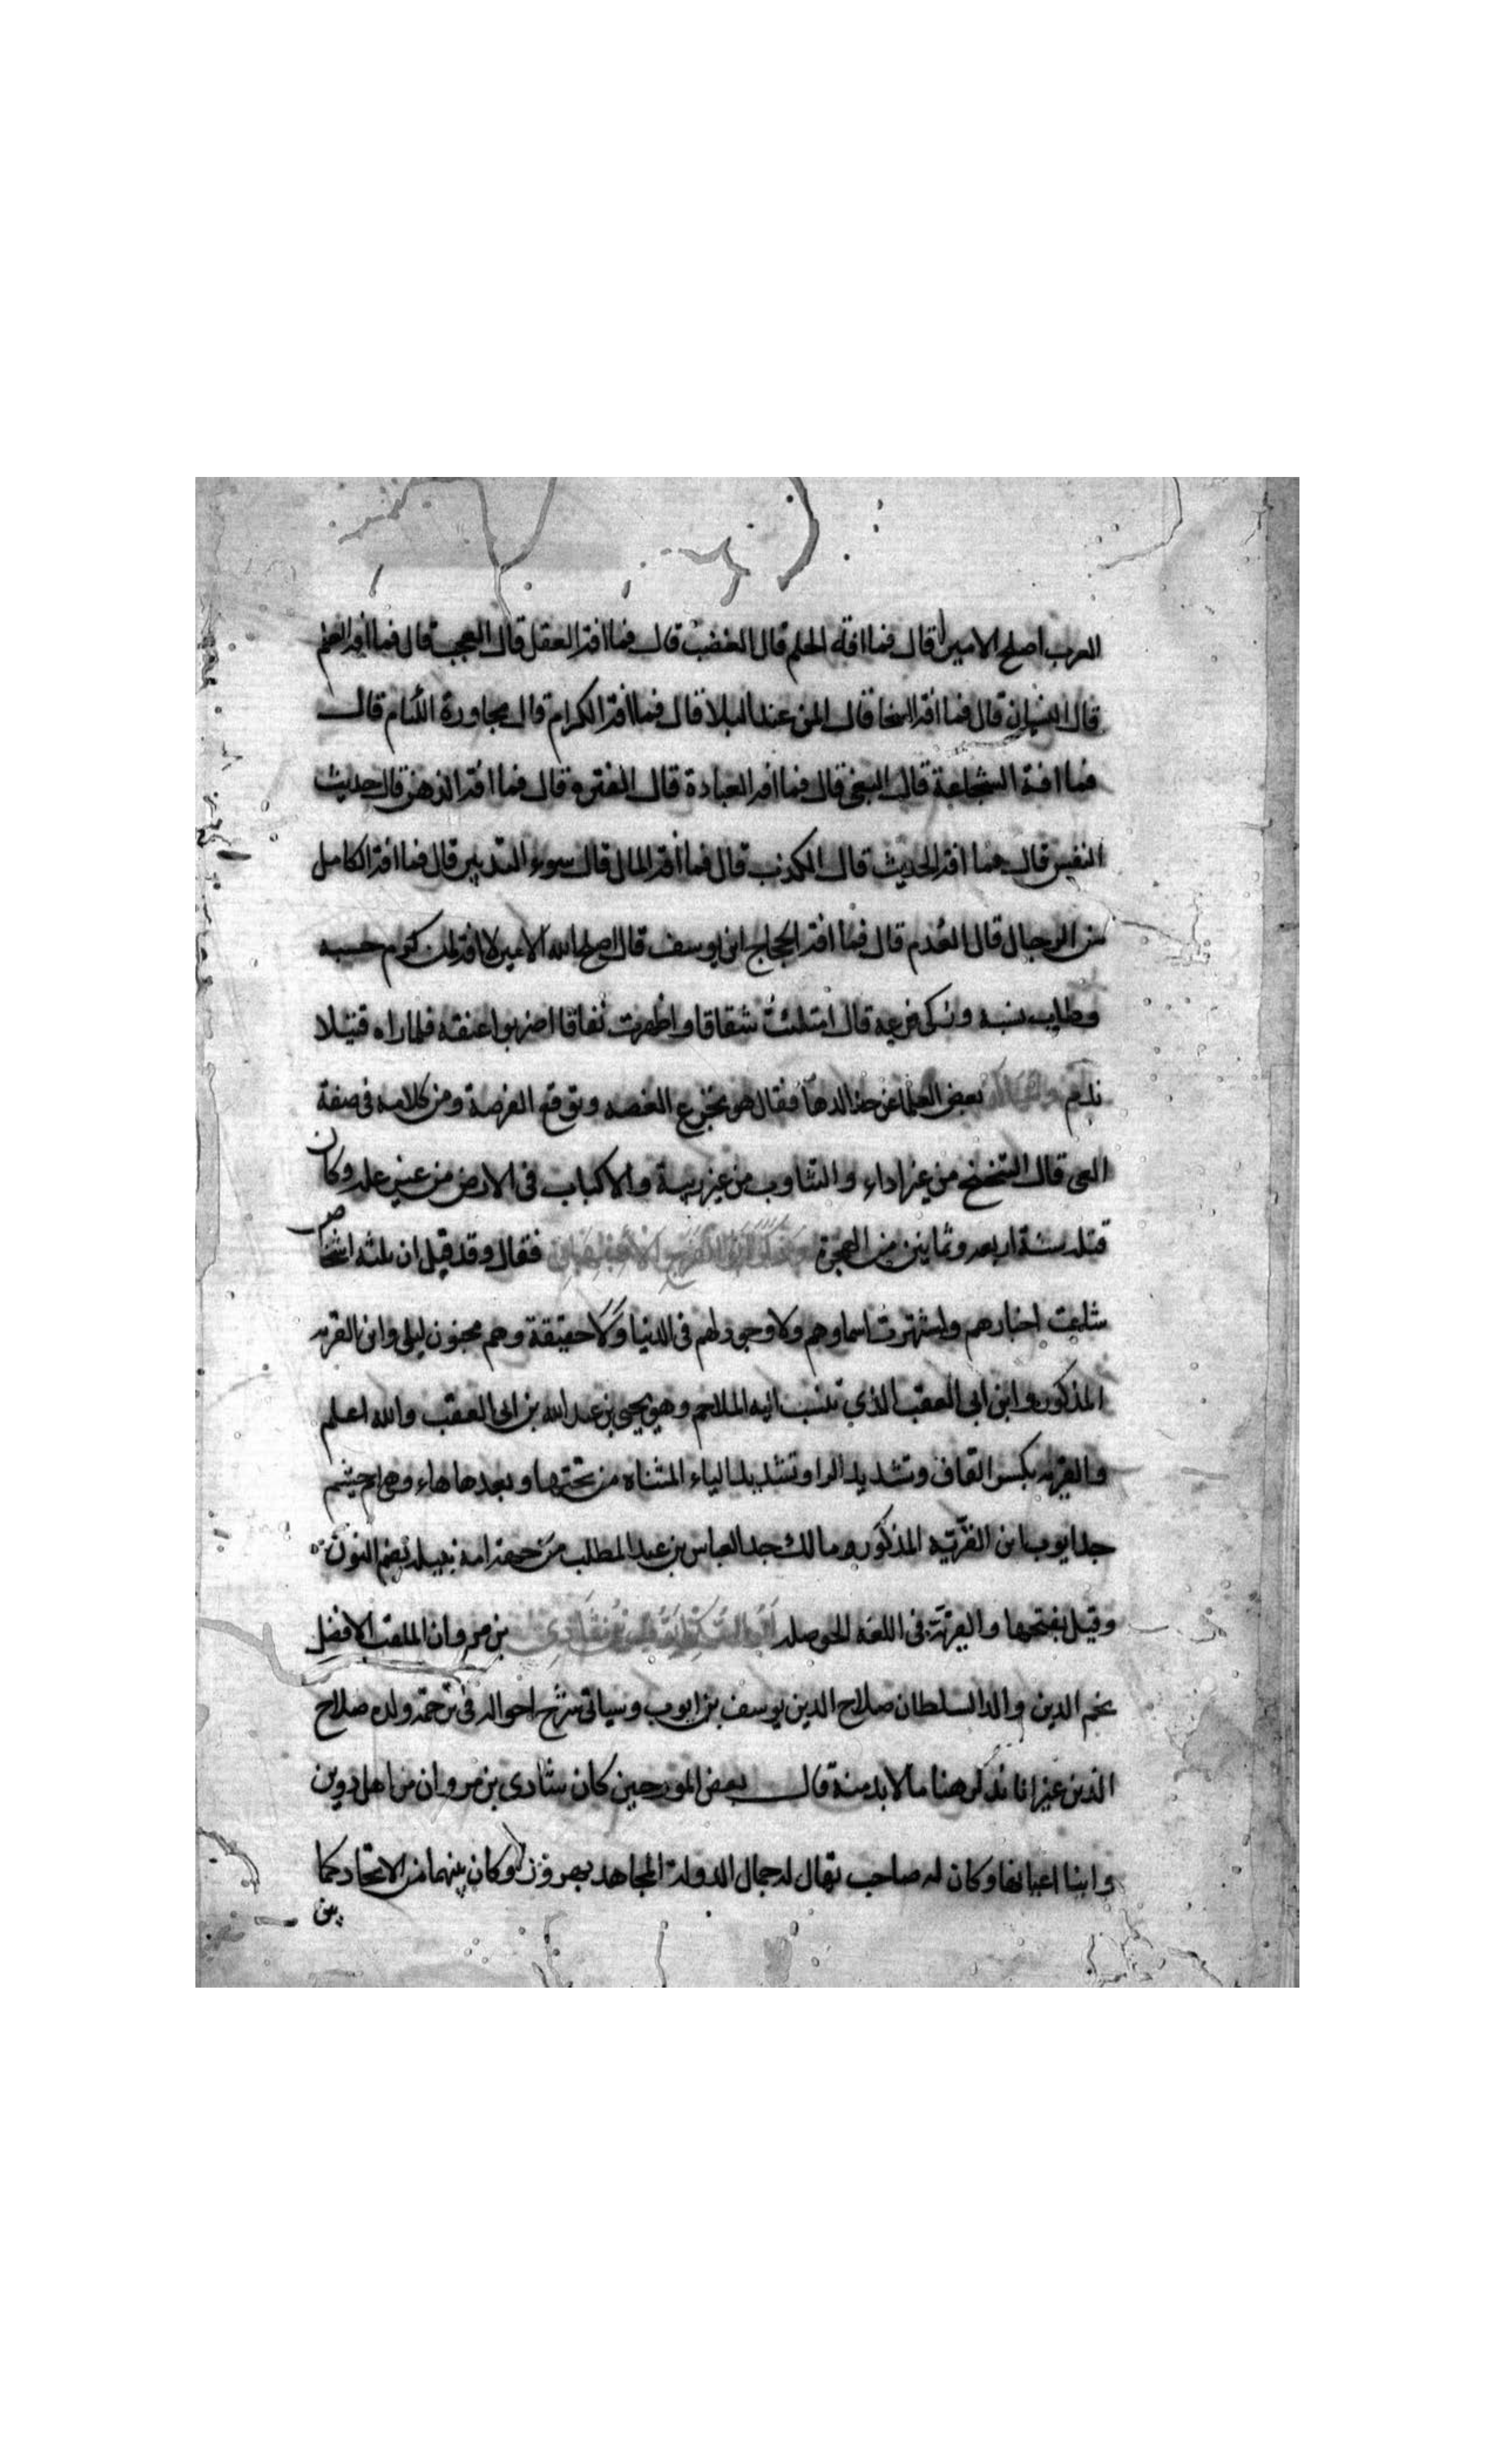 العرب اصلح الامير قال فما افة الحلم قال الغضب قال فما افة العقل قال العجب قال فما افة العلم
قال النسيان قال فما افة السخا قال المن عند البلا قال فما افة الكرام قال مجاورة اللئام قال
فما افة الشجاعة قال البغى قال فما افة العبادة قال الفترة قال فما افة الذهن قال حديث
النفس قال فما افة الحديث قال الكذب قال فما افة المال قال سوء التدبير قال فما افة الكامل
من الرجال قال العدم قال فما افة الحجاج ابن يوسف قال اصلح الله الامير لا افة لمن كرم حسبه
وطاب نسبه وزكى فرعه قال امتلئت شقاقا واظهرت نفاقا اضربوا عنقه فلما راه قتيلا
ندم بعض العلما عن حد الدها فقال هو تجرع الغصه وتوقع الفرصة ومن كلامه فى صفة
العى قال التنحنح من غير داء والتثاوب من غير ريبة والاكباب فى الارض من غير علة وكان
قتله سنة اربعه وثمانين من الهجرة فقال وقد قيل ان ثلثه اشخاص
شاعت اخبارهم واشتهرت اسماوهم ولا وجود لهم فى الدنيا ولا حقيقة وهم مجنون ليلى وابن القريه
المذكور وابن ابى العقب الذي تنسب اليه الملاحم وهو يحيى بن عبد الله بن ابى العقب والله اعلم
والقريه بكسر القاف وتشديد الرا وتشديد الياء المثناه من تحتها وبعدها هاء وهى ام جشم
جد ايوب ابن القريه المذكور ومالك جد العباس بن عبد المطلب من جهة امه نتيله بضم النون
وقيل بفتحها والقرية فى اللغه الحوصله بن مروان الملقب الافضل
نجم الدين والد السلطان صلاح الدين يوسف بن ايوب وسياتى شرح احواله فى ترجمة ولده صلاح
الدين غير انا نذكر هنا ما لا بد منه قال بعض المورخين كان شادى بن مروان من اهل دوين
وابنا اعيانها وكان له صاحب يقال له جمال الدولة المجاهد بهروز وكان بينهما من الاتحاد كما
بين